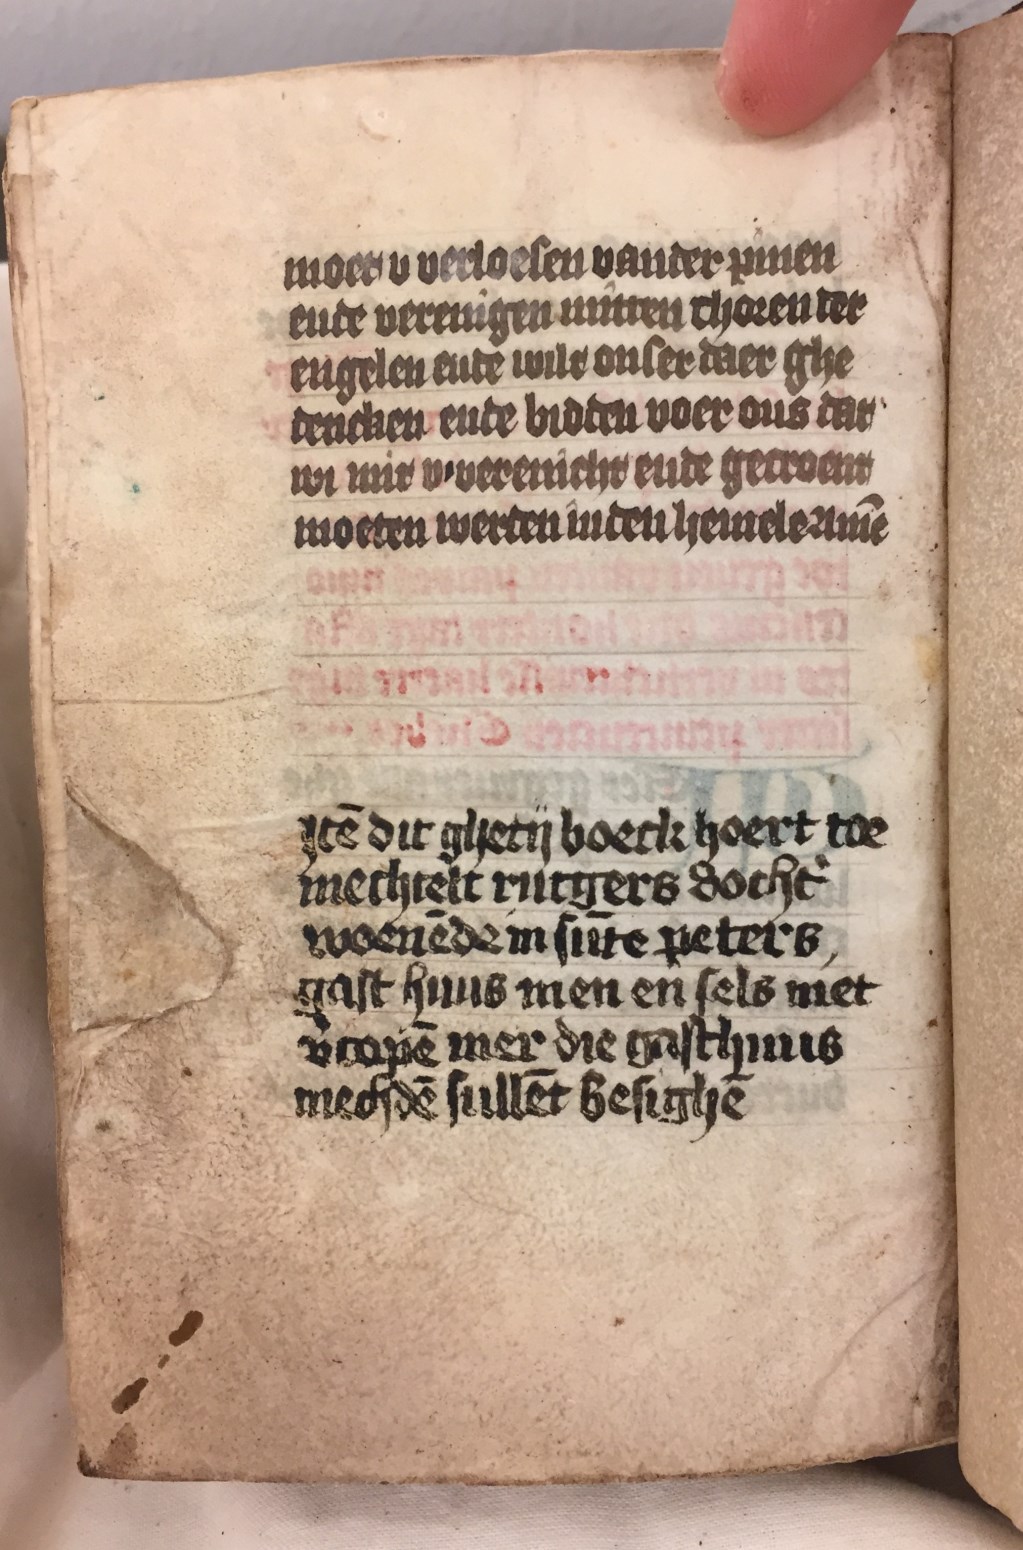 moet v verloesen vander pinen
ende verenigen mitten choren der
engelen ende wilt onser daer ghe
dencken ende bidden voer ons dat
wi mit v verenicht ende getroest
moeten werden inden hemele Amē
Itē dit ghetij boeck hoert toe
mechtelt rutgers docht'
woenēde in sūte peters,
gast huus men en sels niet
v'copē mer die gasthuus
mechdē sullēt besighē